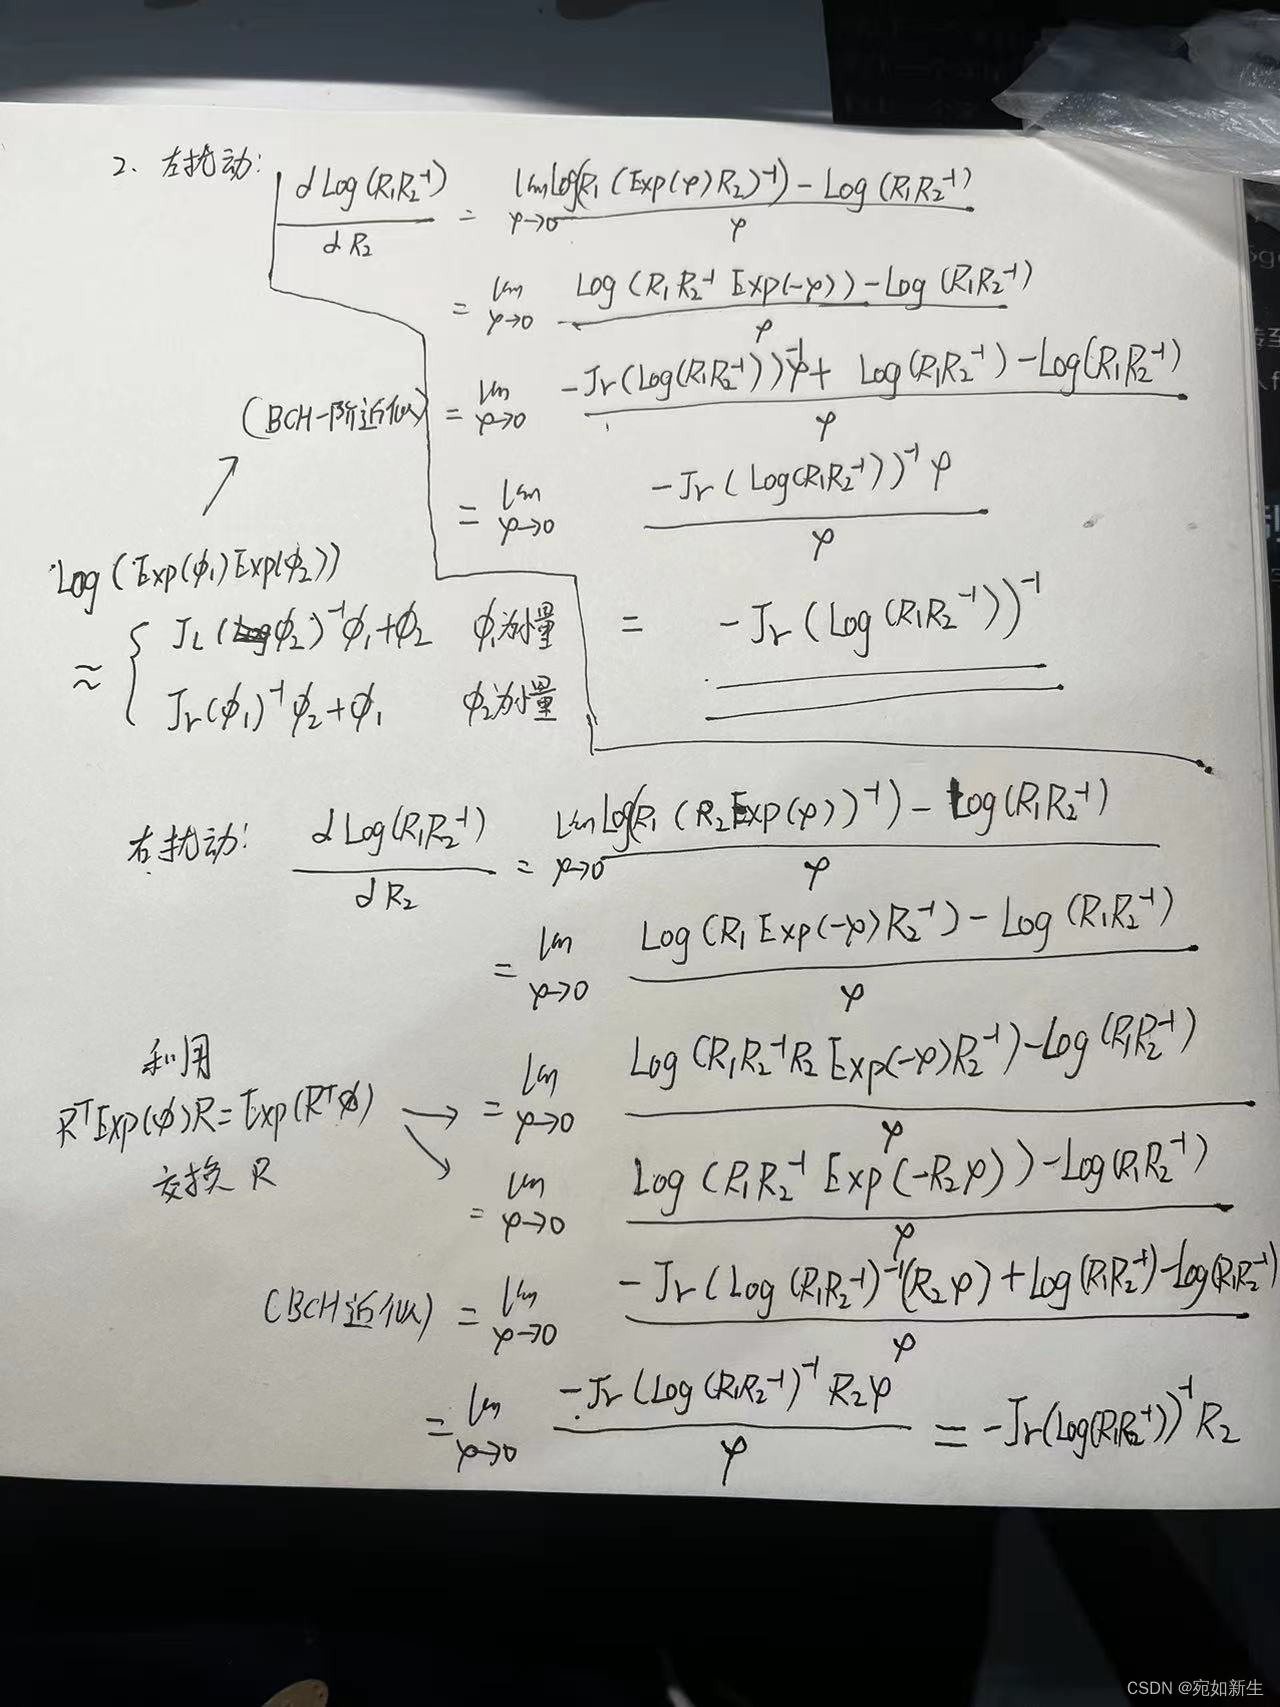 2. 左扰动: d Log(R₁R₂⁻¹) / dR₂ = lim φ→0 Log(R₁(Exp(φ)R₂)⁻¹) - Log(R₁R₂⁻¹) / φ
= lim φ→0 Log(R₁R₂⁻¹ Exp(-φ)) - Log(R₁R₂⁻¹) / φ
(BCH一阶近似) = lim φ→0 -Jr(Log(R₁R₂⁻¹))⁻¹φ + Log(R₁R₂⁻¹) - Log(R₁R₂⁻¹) / φ
= lim φ→0 -Jr(Log(R₁R₂⁻¹))⁻¹φ / φ
Log(Exp(ϕ₁)Exp(ϕ₂))
≈ { JL(ϕ₂)⁻¹ϕ₁+ϕ₂ ϕ₁为小量
Jr(ϕ₁)⁻¹ϕ₂+ϕ₁ ϕ₂为小量
= -Jr(Log(R₁R₂⁻¹))⁻¹
右扰动: d Log(R₁R₂⁻¹) / dR₂ = lim φ→0 Log(R₁(R₂Exp(φ))⁻¹) - Log(R₁R₂⁻¹) / φ
= lim φ→0 Log(R₁Exp(-φ)R₂⁻¹) - Log(R₁R₂⁻¹) / φ
利用
RᵀExp(ϕ)R = Exp(Rᵀϕ)
交换 R
= lim φ→0 Log(R₁R₂⁻¹R₂Exp(-φ)R₂⁻¹) - Log(R₁R₂⁻¹) / φ
= lim φ→0 Log(R₁R₂⁻¹ Exp(-R₂φ)) - Log(R₁R₂⁻¹) / φ
(BCH近似) = lim φ→0 -Jr(Log(R₁R₂⁻¹)⁻¹(R₂φ) + Log(R₁R₂⁻¹) - Log(R₁R₂⁻¹) / φ
= lim φ→0 -Jr(Log(R₁R₂⁻¹)⁻¹R₂φ / φ = -Jr(Log(R₁R₂⁻¹))⁻¹R₂
CSDN @宛如新生